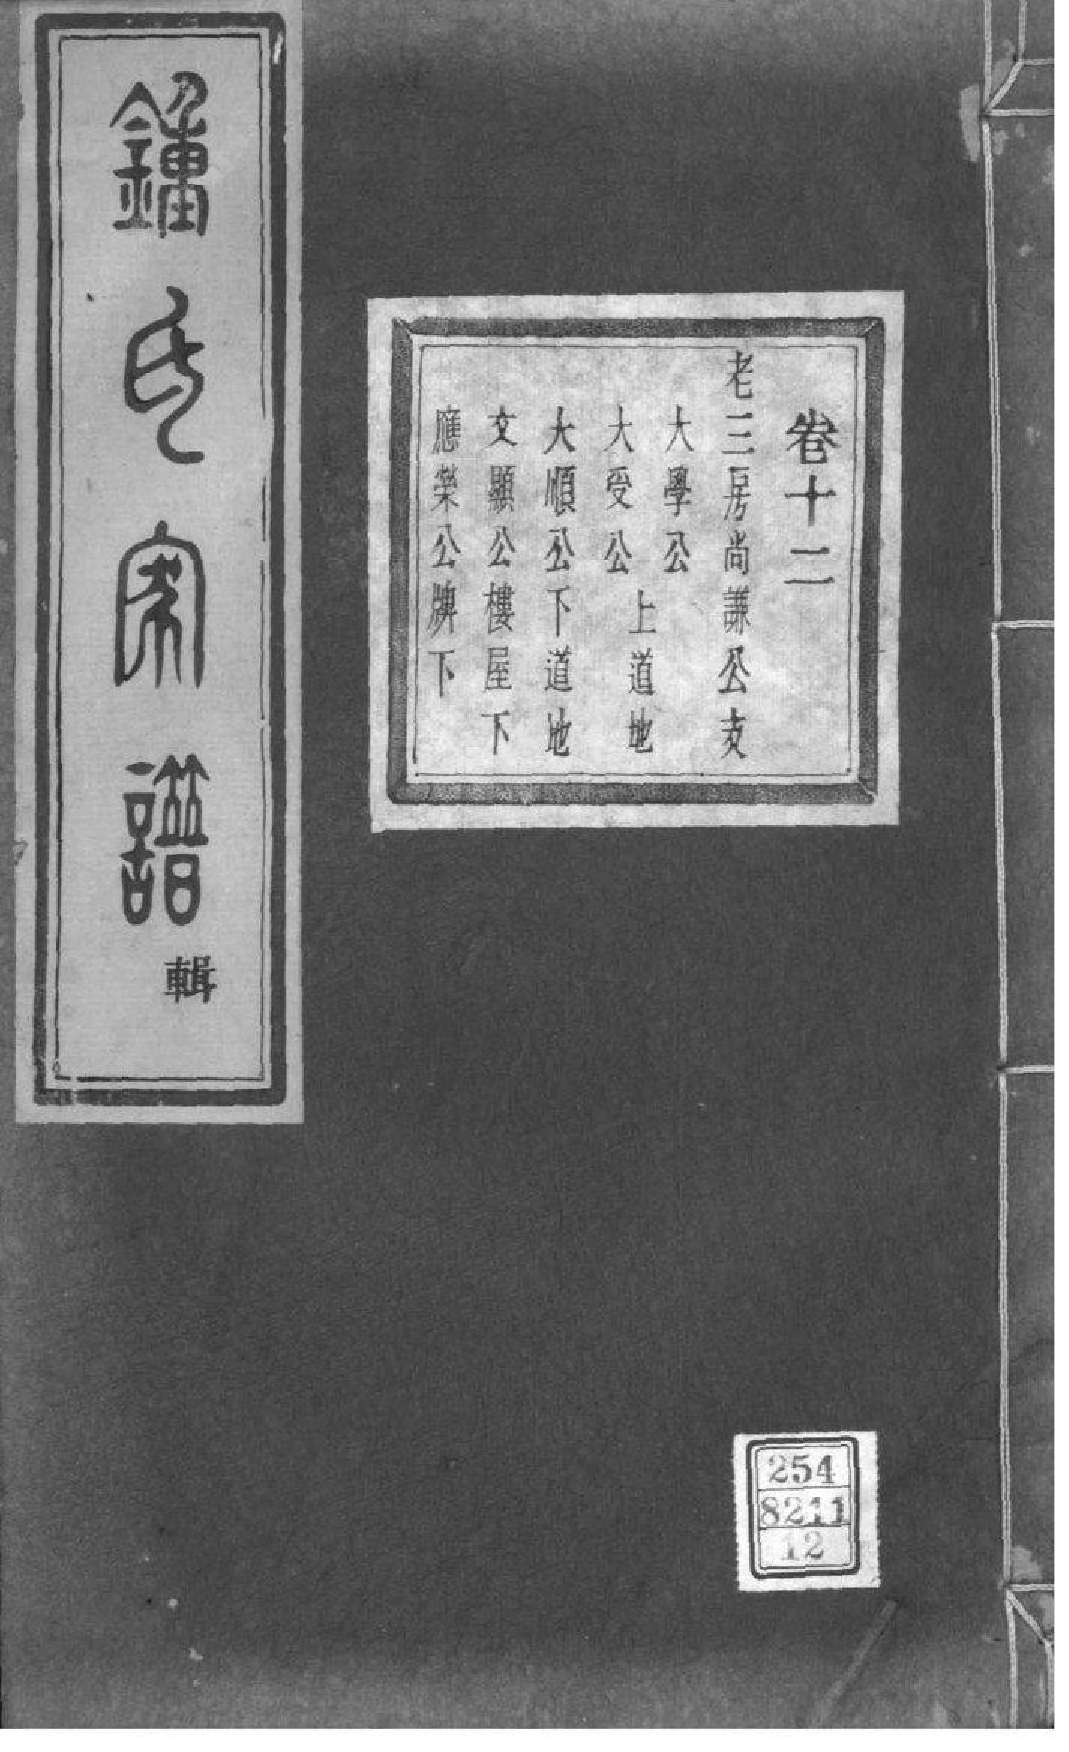 卷十二
老三房尚謙公支
大學公
大受公
上道地
大順公下道地
文顯公樓屋下
應榮公牌下
鍾氏家譜
輯
254
8211
12